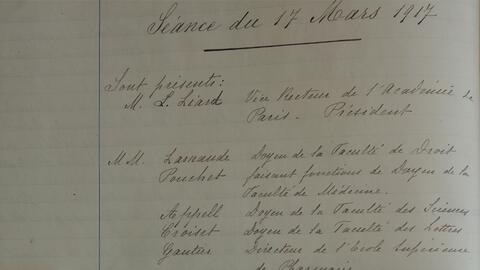 Séance du 17 Mars 1917
Sont présents:
M. L. Liard Vice Recteur de l'Académie de
Paris - Président
MM. Larnaude Doyen de la Faculté de Droit
Pouchet faisant fonctions de Doyen de la
Faculté de Médecine.
Appell Doyen de la Faculté des Sciences
Croiset Doyen de la Faculté des Lettres
Gautier Directeur de l'Ecole Supérieure
de Pharmacie